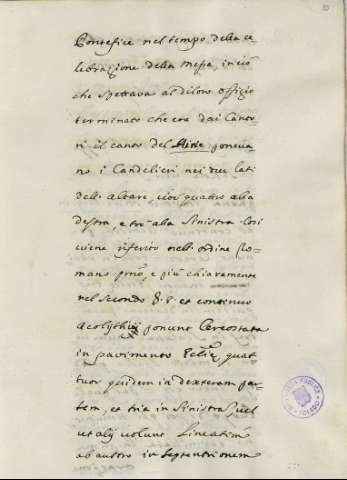 Pontefice nel tempo della ce
librazione della Messa, in ciò
che spettava al di loro offizio
terminato che era dai Canto
ri il canto del Kirie poneva
no i Candelieri nei due lati
dell' Altare, cioè quattro alla
destra, e trè alla Sinistra. Così
viene riferito nell' ordine Ro=
mano prmo, e più chiaramente
nel secondo §. 8. et continuo
acolythi ponunt Cereostata
in pavimento Eccliæ, quat
tuor quidem in dexteram par
tem, et tria in Sinistra, vel
ut alij volunt Lineatim
ab austro in Septentrionem